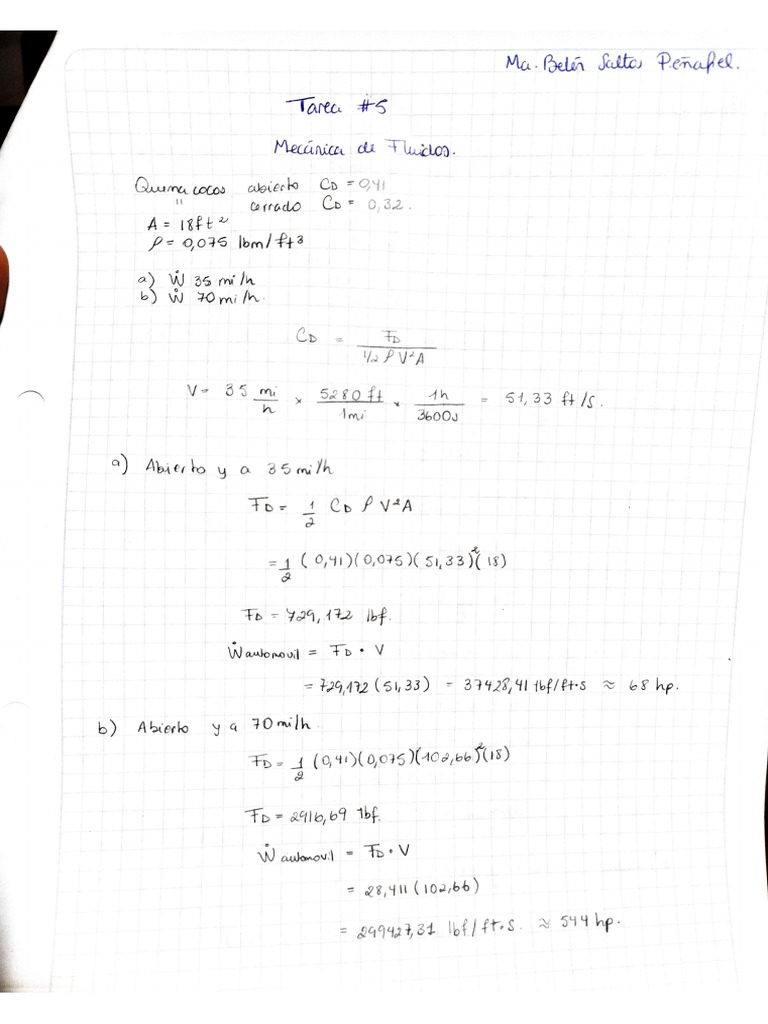 Ma. Belén Saltos Peñafiel.
Tarea #5
Mecánica de Fluidos.
Quema cocos abierto CD = 0,41
" cerrado CD = 0,32.
A = 18ft²
ρ = 0,075 lbm/ft3
a) Ẇ 35 mi/h
b) Ẇ 70 mi/h.
CD = FD / 1/2 ρ V²A
V = 35 mi/h × 5280 ft/1mi × 1h/3600s = 51,33 ft/s.
a) Abierto y a 35mi/h
FD = 1/2 CD ρ V²A
= 1/2 (0,41)(0,075)(51,33)²(18)
FD = 729,172 lbf.
Ẇ automovil = FD · V
= 729,172 (51,33) = 37428,41 lbf/ft·s ≈ 68 hp.
b) Abierto y a 70mi/h.
FD = 1/2 (0,41)(0,075)(102,66)²(18)
FD = 2916,69 lbf.
Ẇ automovil = FD · V
= 28,411 (102,66)
= 299427,31 lbf/ft·s. ≈ 544 hp.